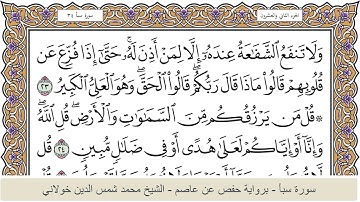 الجزء الثاني والعشرون
سورة سبأ ٣٤
وَلَا تَنفَعُ الشَّفَاعَةُ عِندَهُ إِلَّا لِمَنْ أَذِنَ لَهُ حَتَّىٰ إِذَا فُزِّعَ عَن
قُلُوبِهِمْ قَالُوا مَاذَا قَالَ رَبُّكُمْ قَالُوا الْحَقَّ وَهُوَ الْعَلِيُّ الْكَبِيرُ ٢٣
قُلْ مَن يَرْزُقُكُم مِّنَ السَّمَاوَاتِ وَالْأَرْضِ قُلِ اللَّهُ
وَإِنَّا أَوْ إِيَّاكُمْ لَعَلَىٰ هُدًى أَوْ فِي ضَلَالٍ مُّبِينٍ ٢٤ قُل
سورة سبأ - برواية حفص عن عاصم - الشيخ محمد شمس الدين خولاني